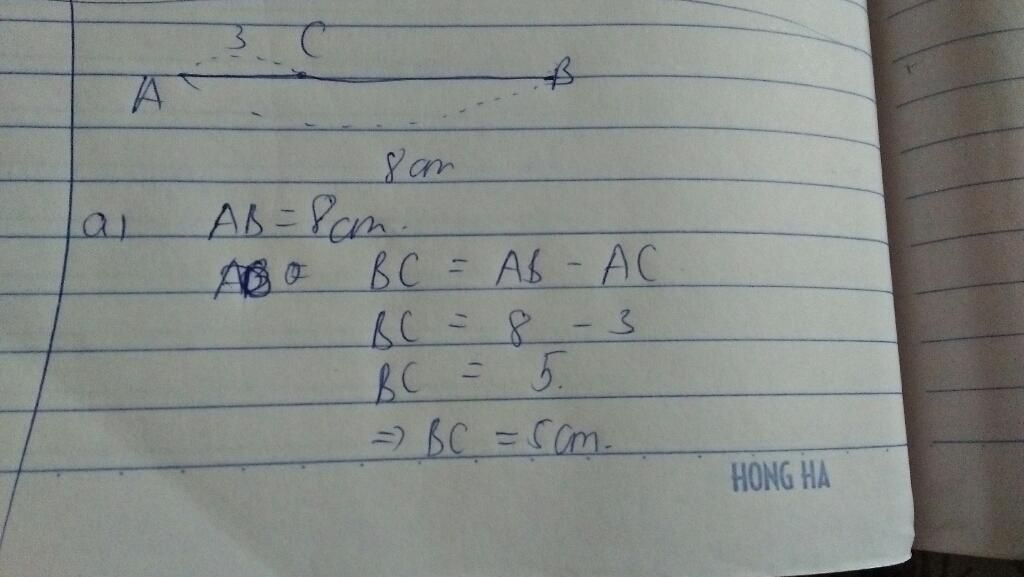 3 C
A B
8 cm
a) AB = 8cm.
BC = AB - AC
BC = 8 - 3
BC = 5.
=> BC = 5cm.
HONG HA